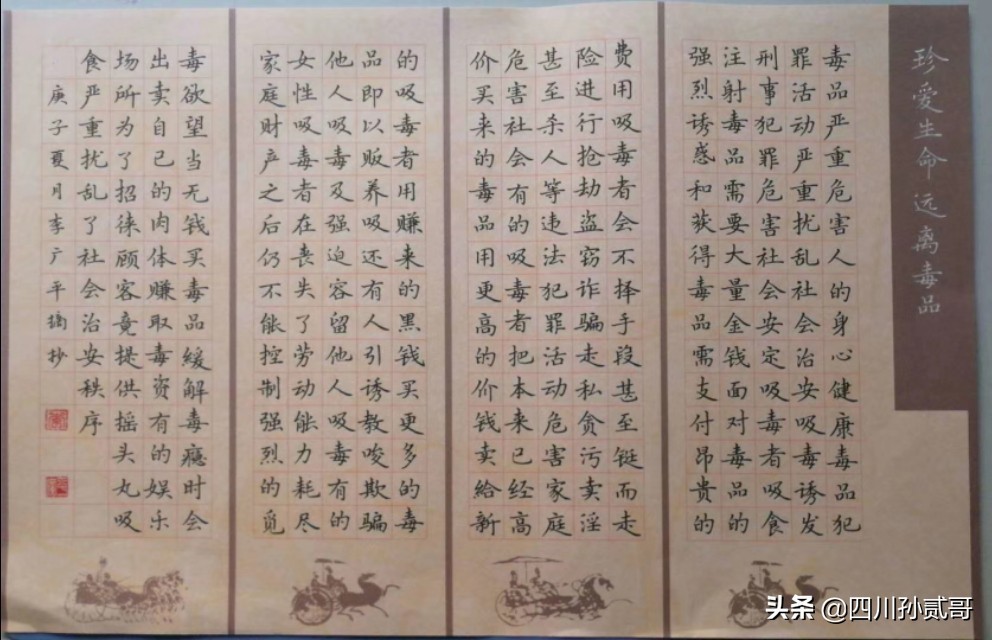 珍爱生命远离毒品
毒品严重危害人的身心健康毒品犯
罪活动严重扰乱社会治安吸毒诱发
刑事犯罪危害社会安定吸毒者吸食
注射毒品需要大量金钱面对毒品的
强烈诱惑和获得毒品需支付昂贵的
费用吸毒者会不择手段甚至铤而走
险进行抢劫盗窃诈骗走私贪污卖淫
甚至杀人等违法犯罪活动危害家庭
危害社会有的吸毒者把本来已经高
价买来的毒品用更高的价钱卖给新
的吸毒者用赚来的黑钱买更多的毒
品即以贩养吸还有人引诱教唆欺骗
他人吸毒及强迫容留他人吸毒有的
女性吸毒者在丧失了劳动能力耗尽
家庭财产之后仍不能控制强烈的觅
毒欲望当无钱买毒品缓解毒瘾时会
出卖自己的肉体赚取毒资有的娱乐
场所为了招徕顾客竟提供摇头丸吸
食严重扰乱了社会治安秩序
庚子夏月李广平摘抄
头条 @四川孙贰哥